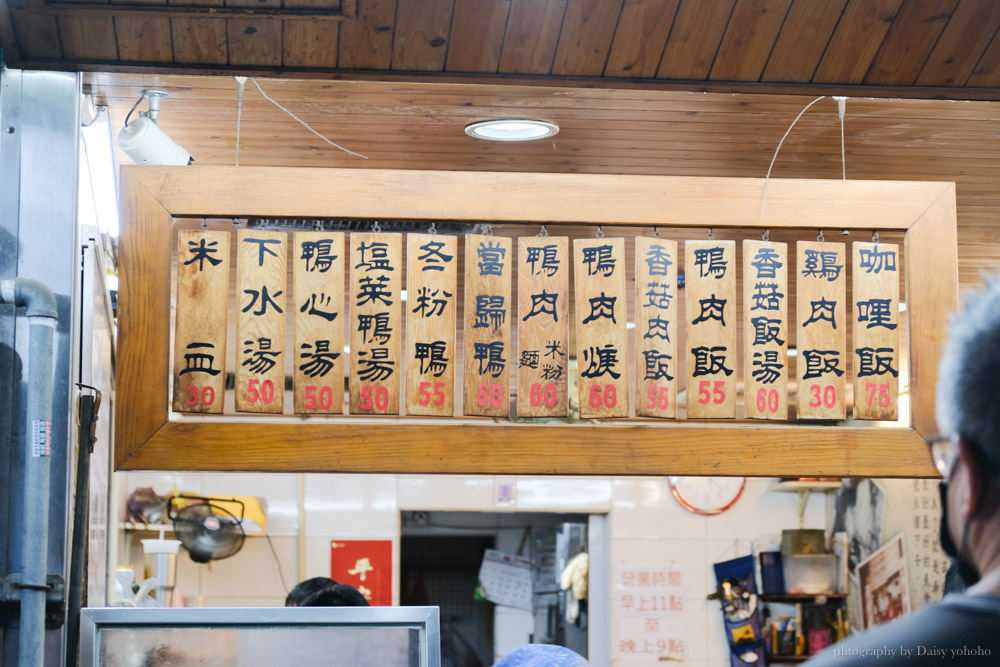 咖哩飯 75
鷄肉飯 30
香菇飯湯 60
鴨肉飯 55
香菇肉飯
鴨肉焿 60
鴨肉 麵 米粉 60
當歸鴨 60
冬粉鴨 55
塩菜鴨湯 50
鴨心湯 50
下水湯 50
米血 30
營業時間
早上11點
至
晚上9點
photography by Daisy yohoho